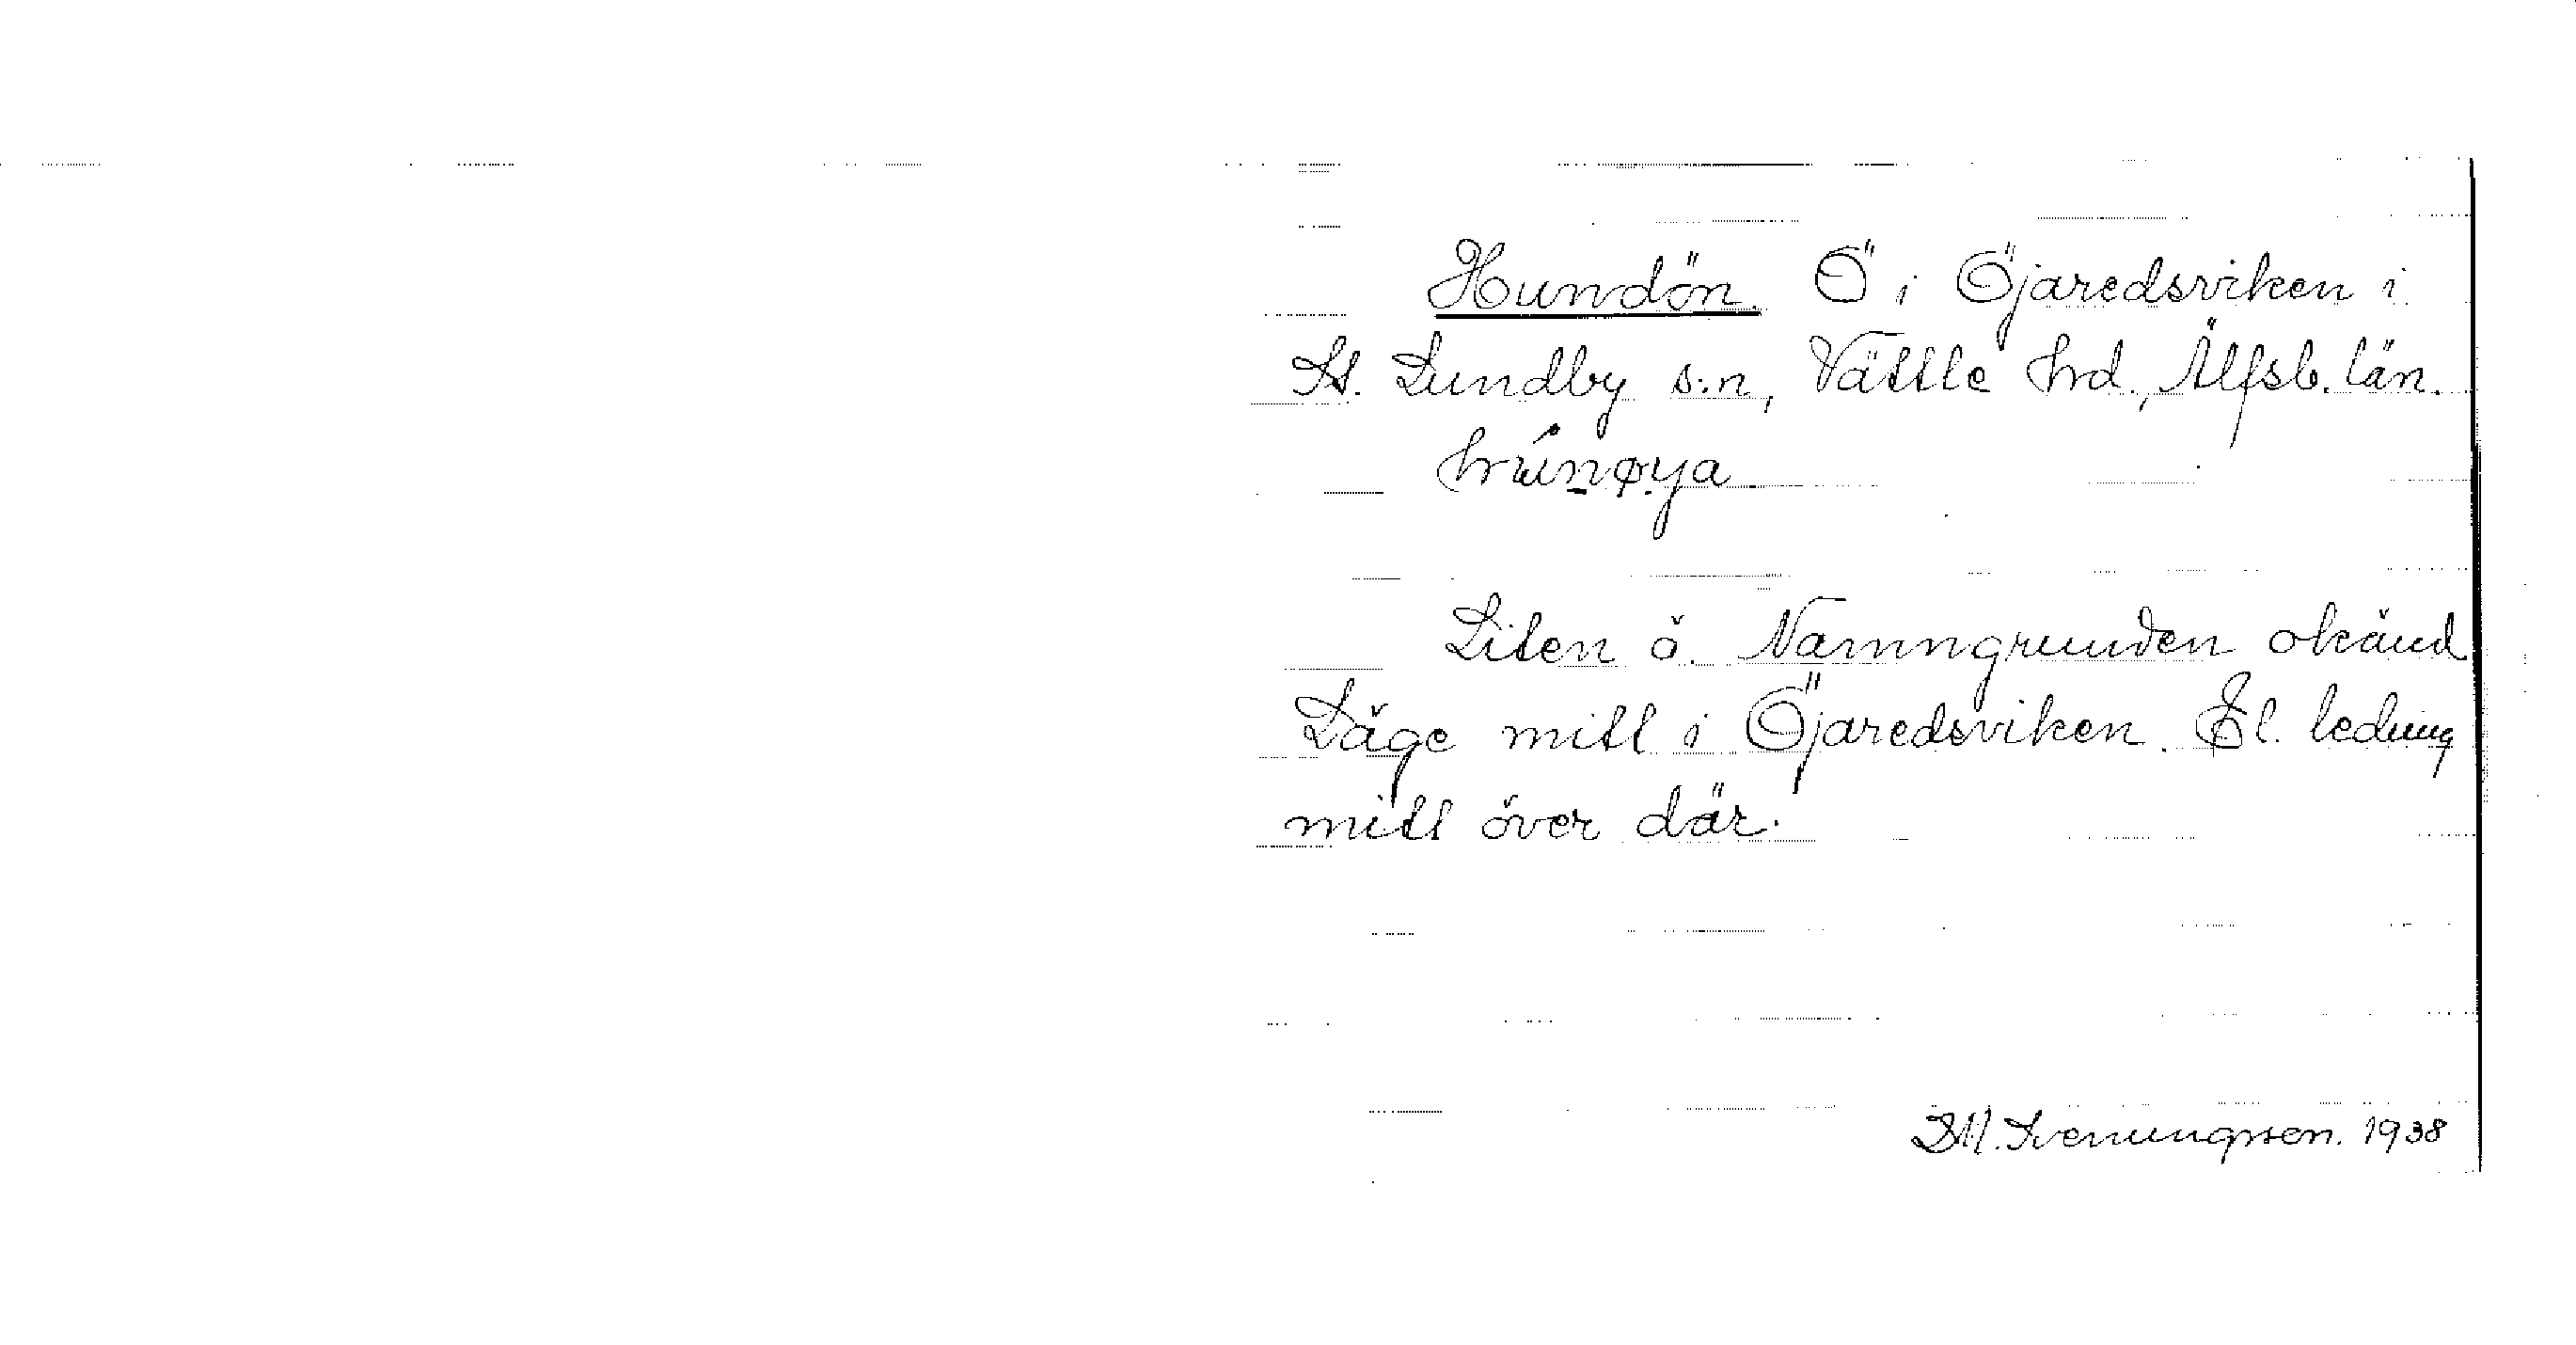 Hundön. Ö i Öjaredsviken i
St. Lundby s:n, Vättle hrd., Älfsb. län.
Liten ö. Namngrunden okänd
Läge mitt i Öjaredsviken. El. ledning
mitt över där.
Svenungsson. 1938